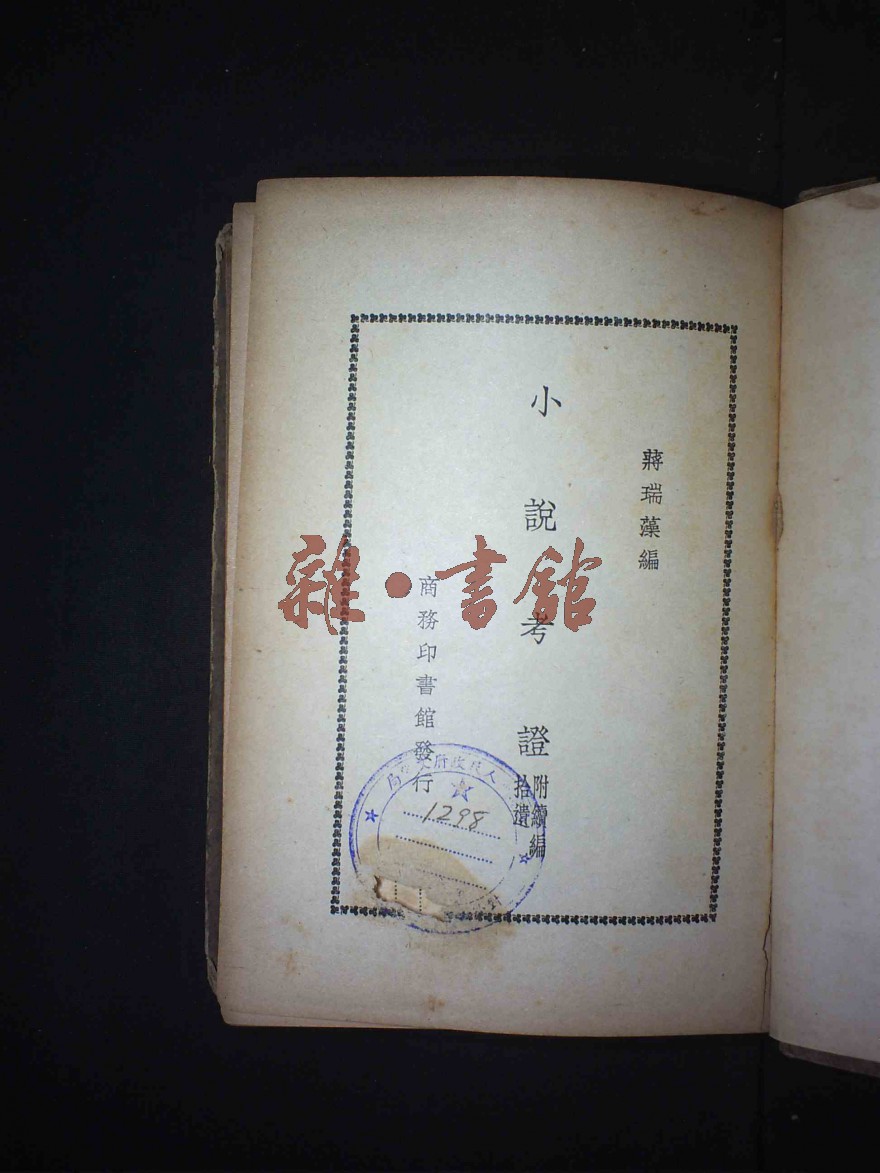 蔣瑞藻編
小說考證
附續編
拾遺
商務印書館發行
雜·書館
1298